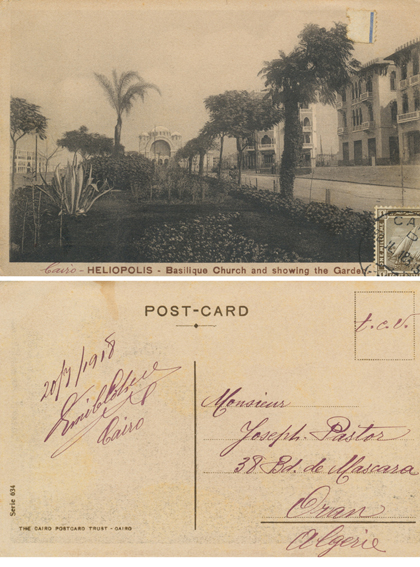 Cairo - HELIOPOLIS - Basilique Church and showing the Garden
CA
POST-CARD
t.c.v.
20/7/1918
Cairo
Monsieur
Joseph Pastor
38 Bd. de Mascara
Oran
Algérie
Serie 634
THE CAIRO POSTCARD TRUST - CAIRO